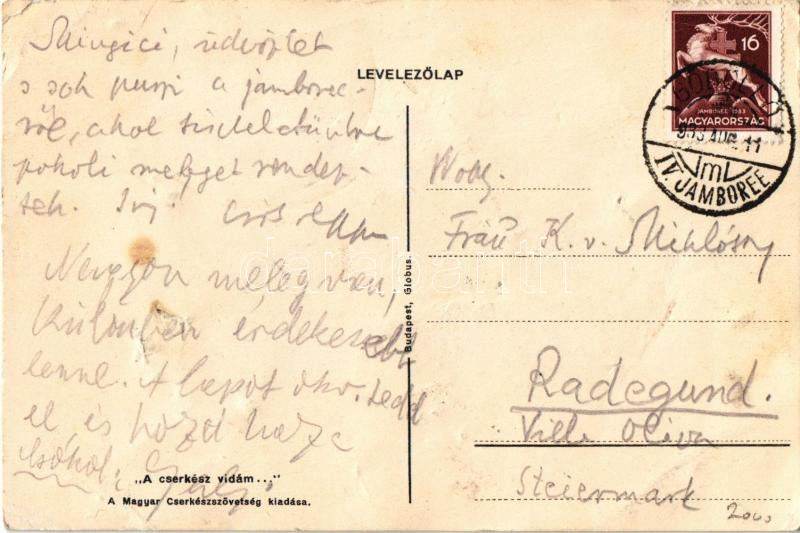 LEVELEZŐLAP
16
JAMBOREE 1933
MAGYARORSZÁG
GÖDÖLLŐ
933 AUG. 11
IV. JAMBOREE
üdvözlet
s sok puszi a jamboree-
ról, ahol tiszteletünkre
pokoli meleget rendez-
tek. Írj.
Nagyon meleg van,
különben érdekesebb
lenne. A lapot tedd
el és hozd haza
Csókol,
"A cserkész vidám..."
A Magyar Cserkészszövetség kiadása.
Budapest, Globus.
Frau K. v. Miklóssy
Radegund.
Villa Oliva
Steiermark
2000
darabanth